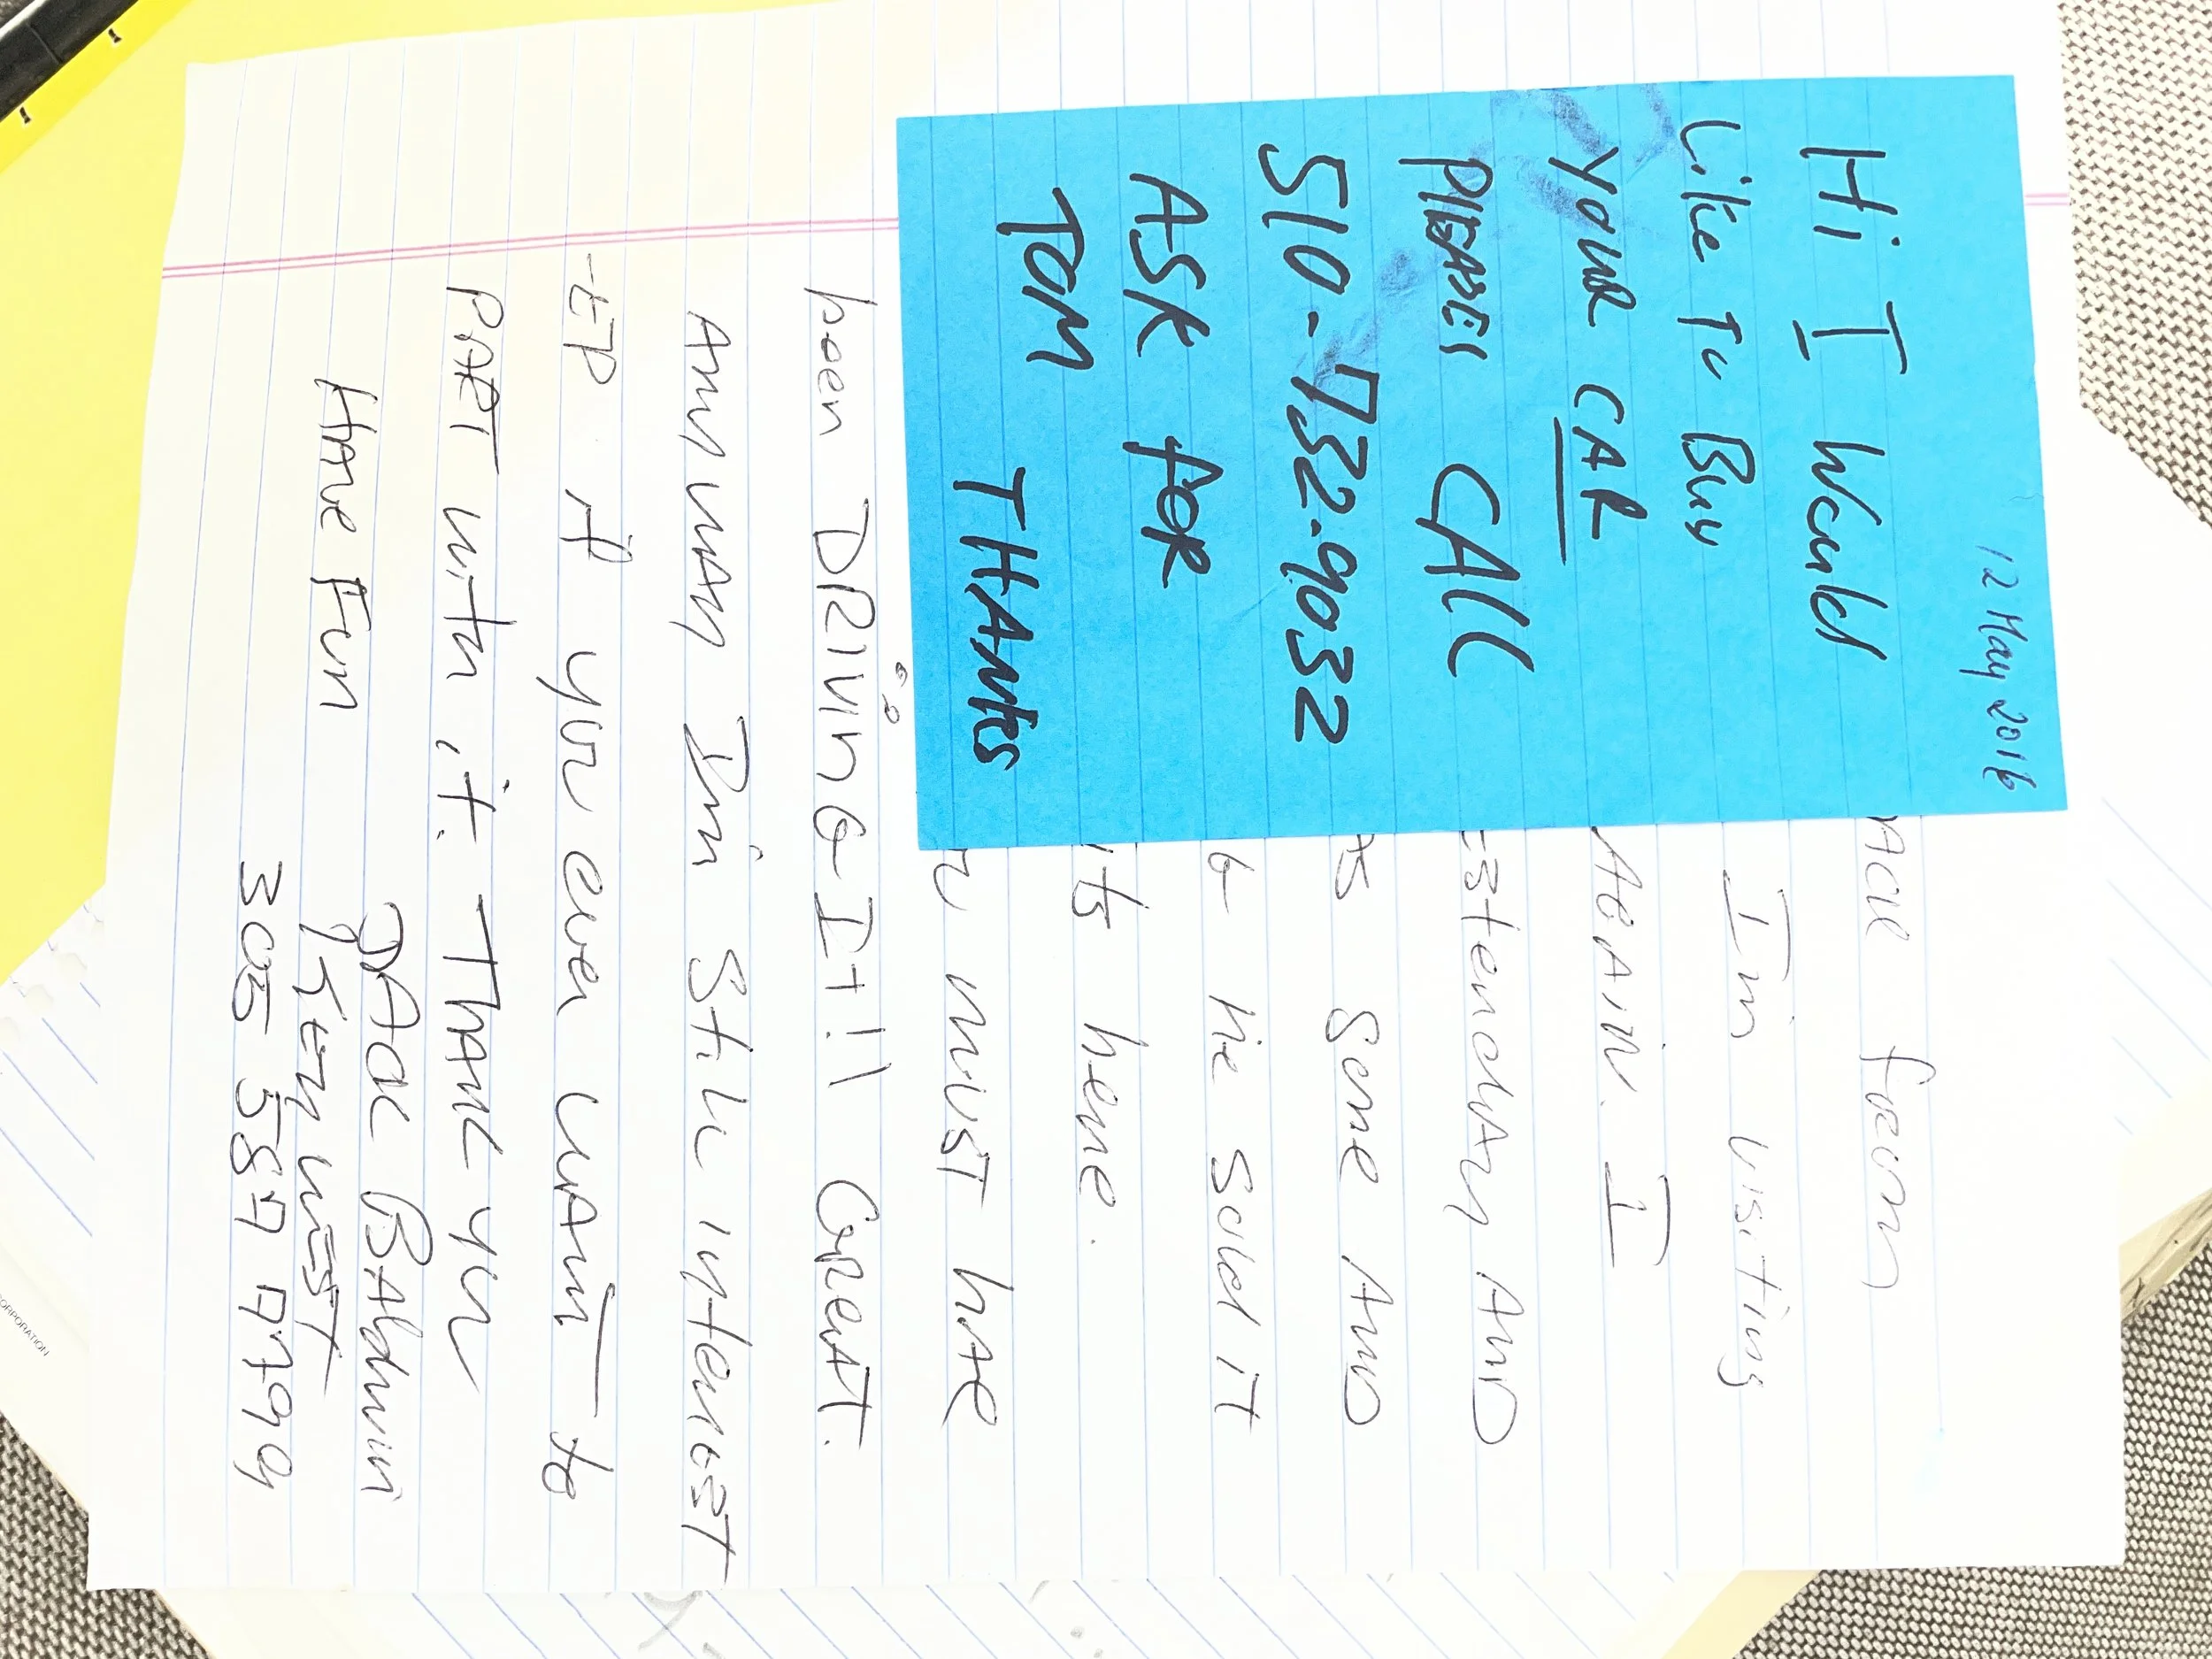 12 May 2016
Hi I Would
Like To Buy
YOUR CAR
PLEASES CALL
510-732-9032
ASK FOR
TOM THANKS
from
I'm visiting
AGAIN. I
AND
Gone AND
He Sold IT
here.
must have
been DRIVING It!! GREAT.
Anyway I'm Still interest
-ED if you ever WANT to
PART with it. THANK you
Have Fun
DAVE BAldwin
Key west
305 587 7799
CORPORATION